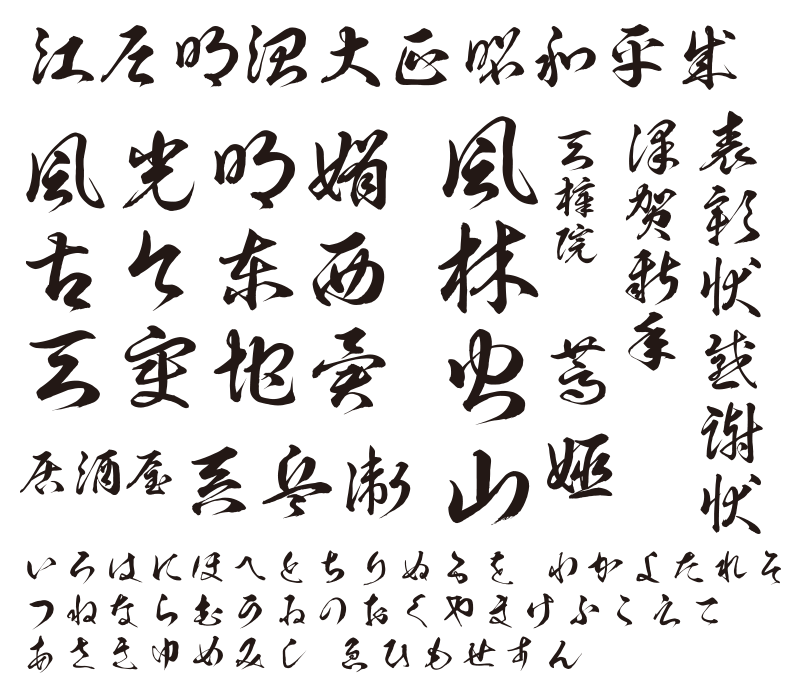 江戸明治大正昭和平成
風光明媚
古今東西
天変地異
居酒屋 呑兵衛
風林火山
天璋院
篤姫
謹賀新年
表彰状感謝状
いろはにほへとちりぬるを わかよたれそ
つねならむうゐのおくやまけふこえて
あさきゆめみし ゑひもせすん